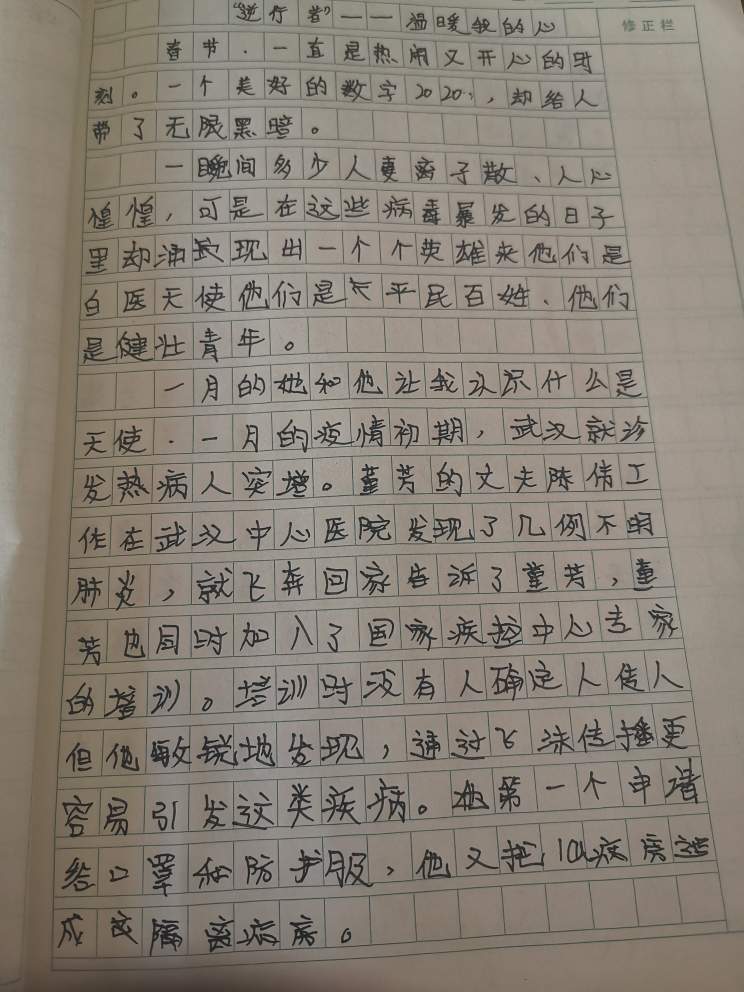 “逆行者”——温暖我的心
修正栏
春节.一直是热闹又开心的时
刻。一个美好的数字2020,却给人
带了无限黑暗。
一晚间多少人妻离子散、人心
惶惶,可是在这些病毒暴发的日子
里却涌现出一个个英雄来他们是
白医天使他们是平民百姓、他们
是健壮青年。
一月的她和他让我认识什么是
天使.一月的疫情初期,武汉就诊
发热病人突增。董芳的丈夫陈倩工
作在武汉中心医院发现了几例不明
肺炎,就飞奔回家告诉了董芳,董
芳也同时加入了国家疾控中心专家
的培训。培训时没有人确定人传人
但他敏锐地发现,通过飞沫传播更
容易引发这类疾病。她第一个申请
给口罩和防护服,他又把10病房
成隔离病房。